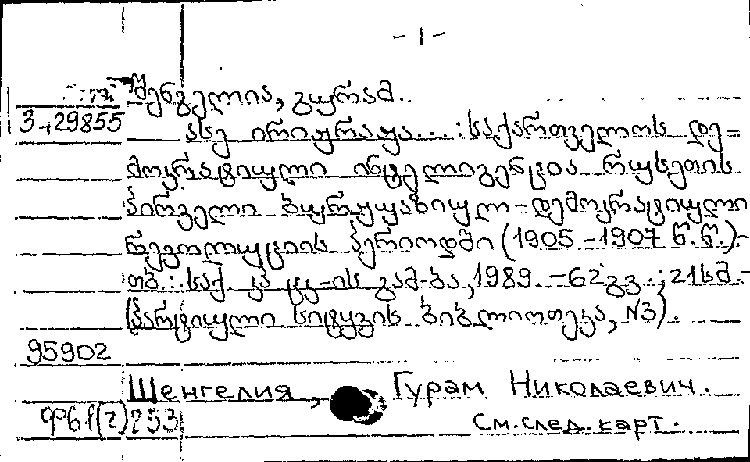 -1-
შენგელია, გურამ.
3-,29855
ასე იბრძოდა...: საქართველოს დე=
მოკრატიული ინტელიგენცია რუსეთის
პირველი ბურჟუაზიულ-დემოკრატიული
რევოლუციის პერიოდში (1905-1907 წ.წ.).-
თბ.: საქ. კპ ცკ-ის გამ-ბა, 1989. -62 გვ.; 21სმ.-
(პარტიული სიტყვის ბიბლიოთეკა, №3).
95902
Шенгелия, Гурам Николаевич.
ФБ1(2)253
См. след. карт.